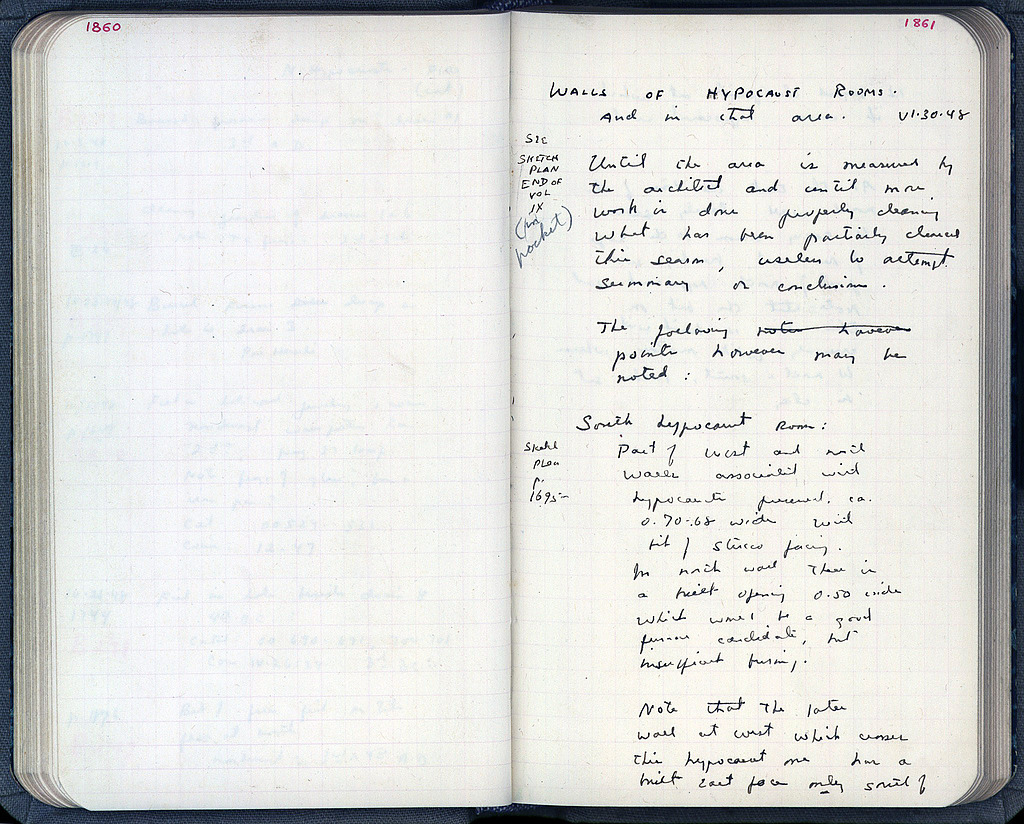 1860
1861
WALLS OF HYPOCAUST ROOMS.
And in that area. VI·30·48
SEE
SKETCH
PLAN
END OF
VOL
IX
(in
pocket)
Until the area is measured by
the architect and until more
work is done properly cleaning
what has been partially cleared
this season, useless to attempt
summary or conclusions.
The following notes however
points however may be
noted:
South Hypocaust Room:
Sketch
Plan
p.
1695-
Part of west and north
walls associated with
hypocausts preserved. ca.
0.70-.68 wide with
bit of stucco facing.
In north wall there is
a built opening 0.50 wide
which would be a good
furnace candidate, but
insufficient burning.
Note that the later
wall at west which crosses
this hypocaust one has a
built east face only south of